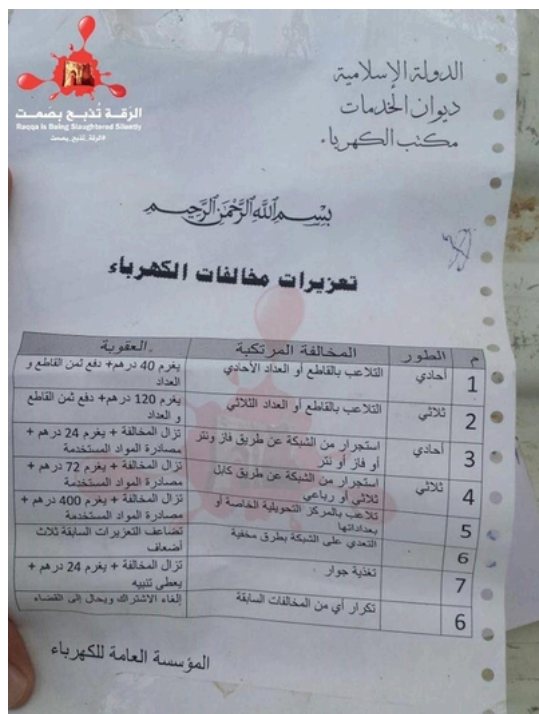 الرقة تُذبح بصمت
Raqqa is Being Slaughtered Silently
#الرقة_تذبح_بصمت
الدولة الإسلامية
ديوان الخدمات
مكتب الكهرباء.
بسم الله الرحمن الرحيم
تعزيرات مخالفات الكهرباء
م الطور المخالفة المرتكبة العقوبة
1 أحادي التلاعب بالقاطع أو العداد الأحادي يغرم 40 درهم+ دفع ثمن القاطع و
العداد
2 ثلاثي التلاعب بالقاطع أو العداد الثلاثي يغرم 120 درهم+ دفع ثمن القاطع
و العداد
3 أحادي استجرار من الشبكة عن طريق فاز ونتر تزال المخالفة + يغرم 24 درهم +
أو فاز أو نتر مصادرة المواد المستخدمة
4 ثلاثي استجرار من الشبكة عن طريق كابل تزال المخالفة + يغرم 72 درهم +
ثلاثي أو رباعي مصادرة المواد المستخدمة
5 تلاعب بالمركز التحويلية الخاصة أو تزال المخالفة + يغرم 400 درهم +
بعداداتها مصادرة المواد المستخدمة
6 التعدي على الشبكة بطرق مخفية تضاعف التعزيرات السابقة ثلاث
أضعاف
7 تغذية جوار تزال المخالفة + يغرم 24 درهم +
يعطى تنبيه
6 تكرار أي من المخالفات السابقة إلغاء الاشتراك ويحال إلى القضاء
المؤسسة العامة للكهرباء